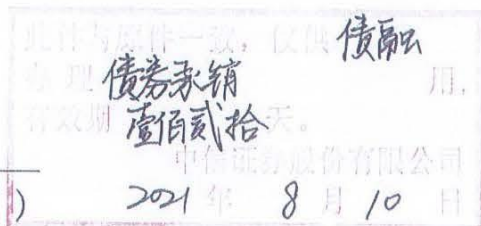 此件与原件一致，仅供 债融
办理 债券承销 用，
有效期 壹佰贰拾 天。
中信证券股份有限公司
) 2021 年 8 月 10 日